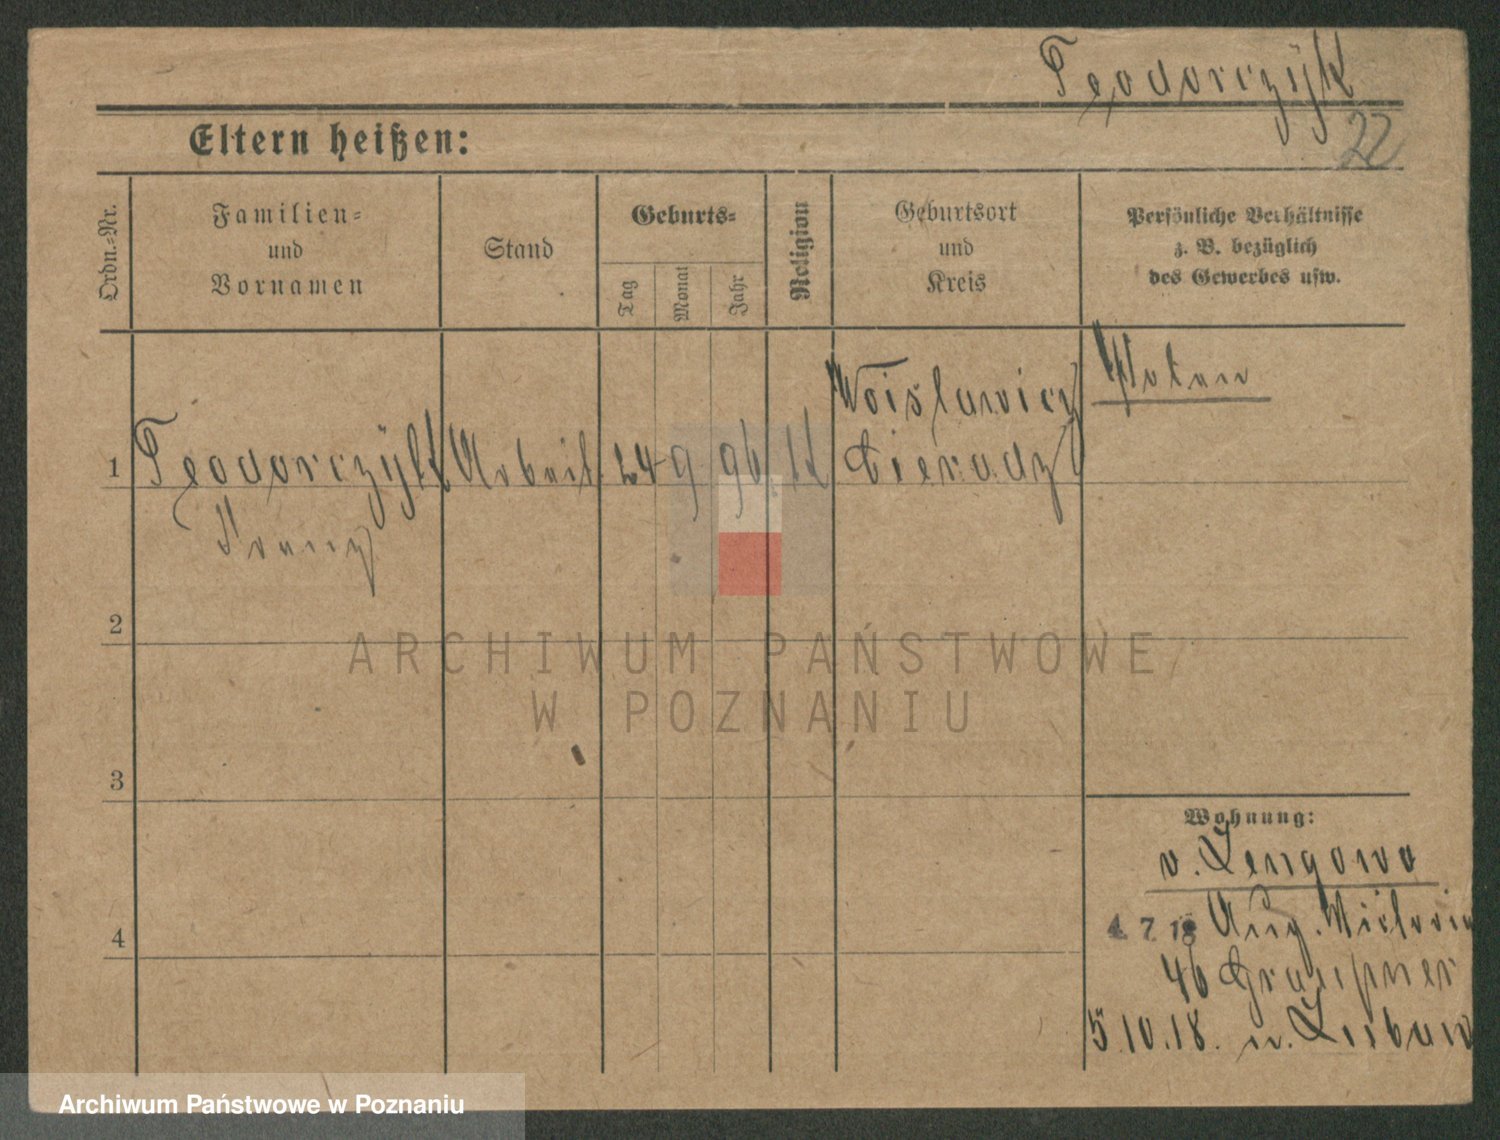 Teodorczyk
22
Eltern heißen:
Ordn.-Nr.
Familien-
und
Vornamen
Stand
Geburts-
Tag
Monat
Jahr
Religion
Geburtsort
und
Kreis
Persönliche Verhältnisse
z. B. bezüglich
des Gewerbes usw.
1 Teodorczyk Arbeit. 24 9 96 K
Franz
Woislawicz
Sieradz
2
3
4
Wohnung:
v. Lengowo
4. 7. 18 Aug. Victoria
46 Graupner
5.10.18. n.
ARCHIWUM PAŃSTWOWE
W POZNANIU
Archiwum Państwowe w Poznaniu